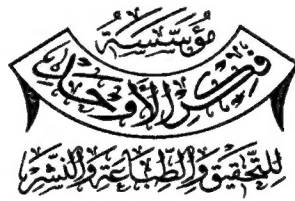 مؤسَّسَة
فكر الأوحد
للتحقيق والطِّباعة والنَّشر